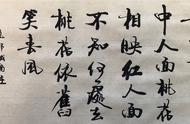 中人面桃花
相映红人面
不知何處去
桃花依舊
笑春風